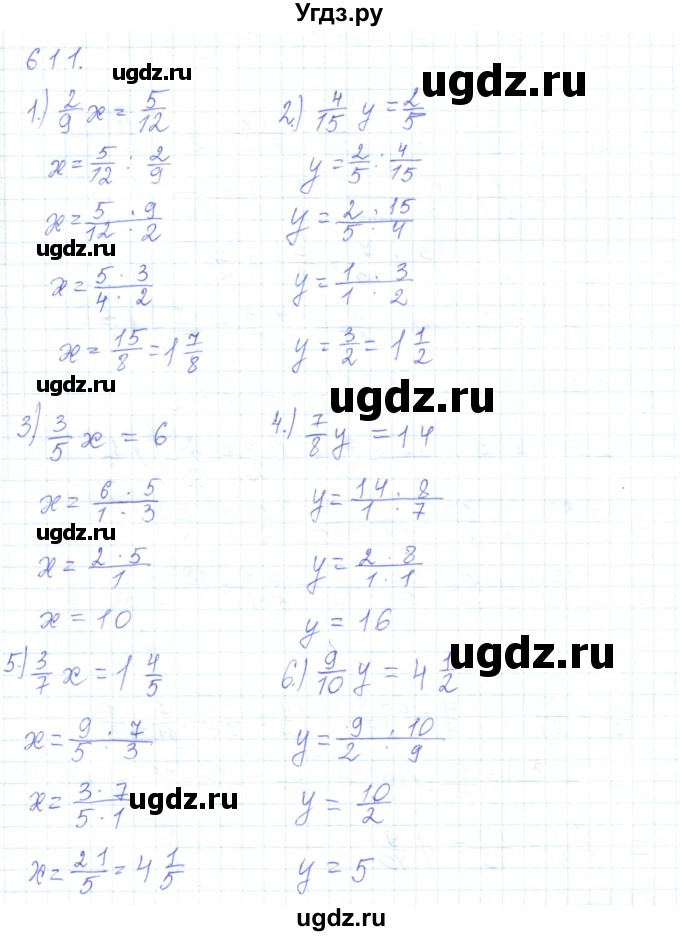 Угдз.ру
611.
ugdz.ru
1.) 2/9 x = 5/12
x = 5/12 : 2/9
x = 5 · 9 / 12 · 2
ugdz.ru
x = 5 · 3 / 4 · 2
x = 15/8 = 1 7/8
2.) 4/15 y = 2/5
ugdz.ru
y = 2/5 : 4/15
y = 2 · 15 / 5 · 4
y = 1 · 3 / 1 · 2
y = 3/2 = 1 1/2
ugdz.ru
ugdz.ru
3) 3/5 x = 6
x = 6 · 5 / 1 · 3
ugdz.ru
x = 2 · 5 / 1
x = 10
4.) 7/8 y = 14
y = 14 · 8 / 1 · 7
y = 2 · 8 / 1 · 1
y = 16
ugdz.ru
5.) 3/7 x = 1 4/5
x = 9 · 7 / 5 · 3
x = 3 · 7 / 5 · 1
ugdz.ru
x = 21/5 = 4 1/5
6.) 9/10 y = 4 1/2
y = 9 · 10 / 2 · 9
y = 10/2
ugdz.ru
y = 5
ugdz.ru